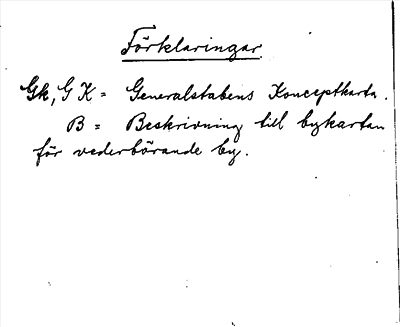 Förklaringar.
Gk, G K = Generalstabens Konceptkarta.
B = Beskrivning till bykartan
för vederbörande by.